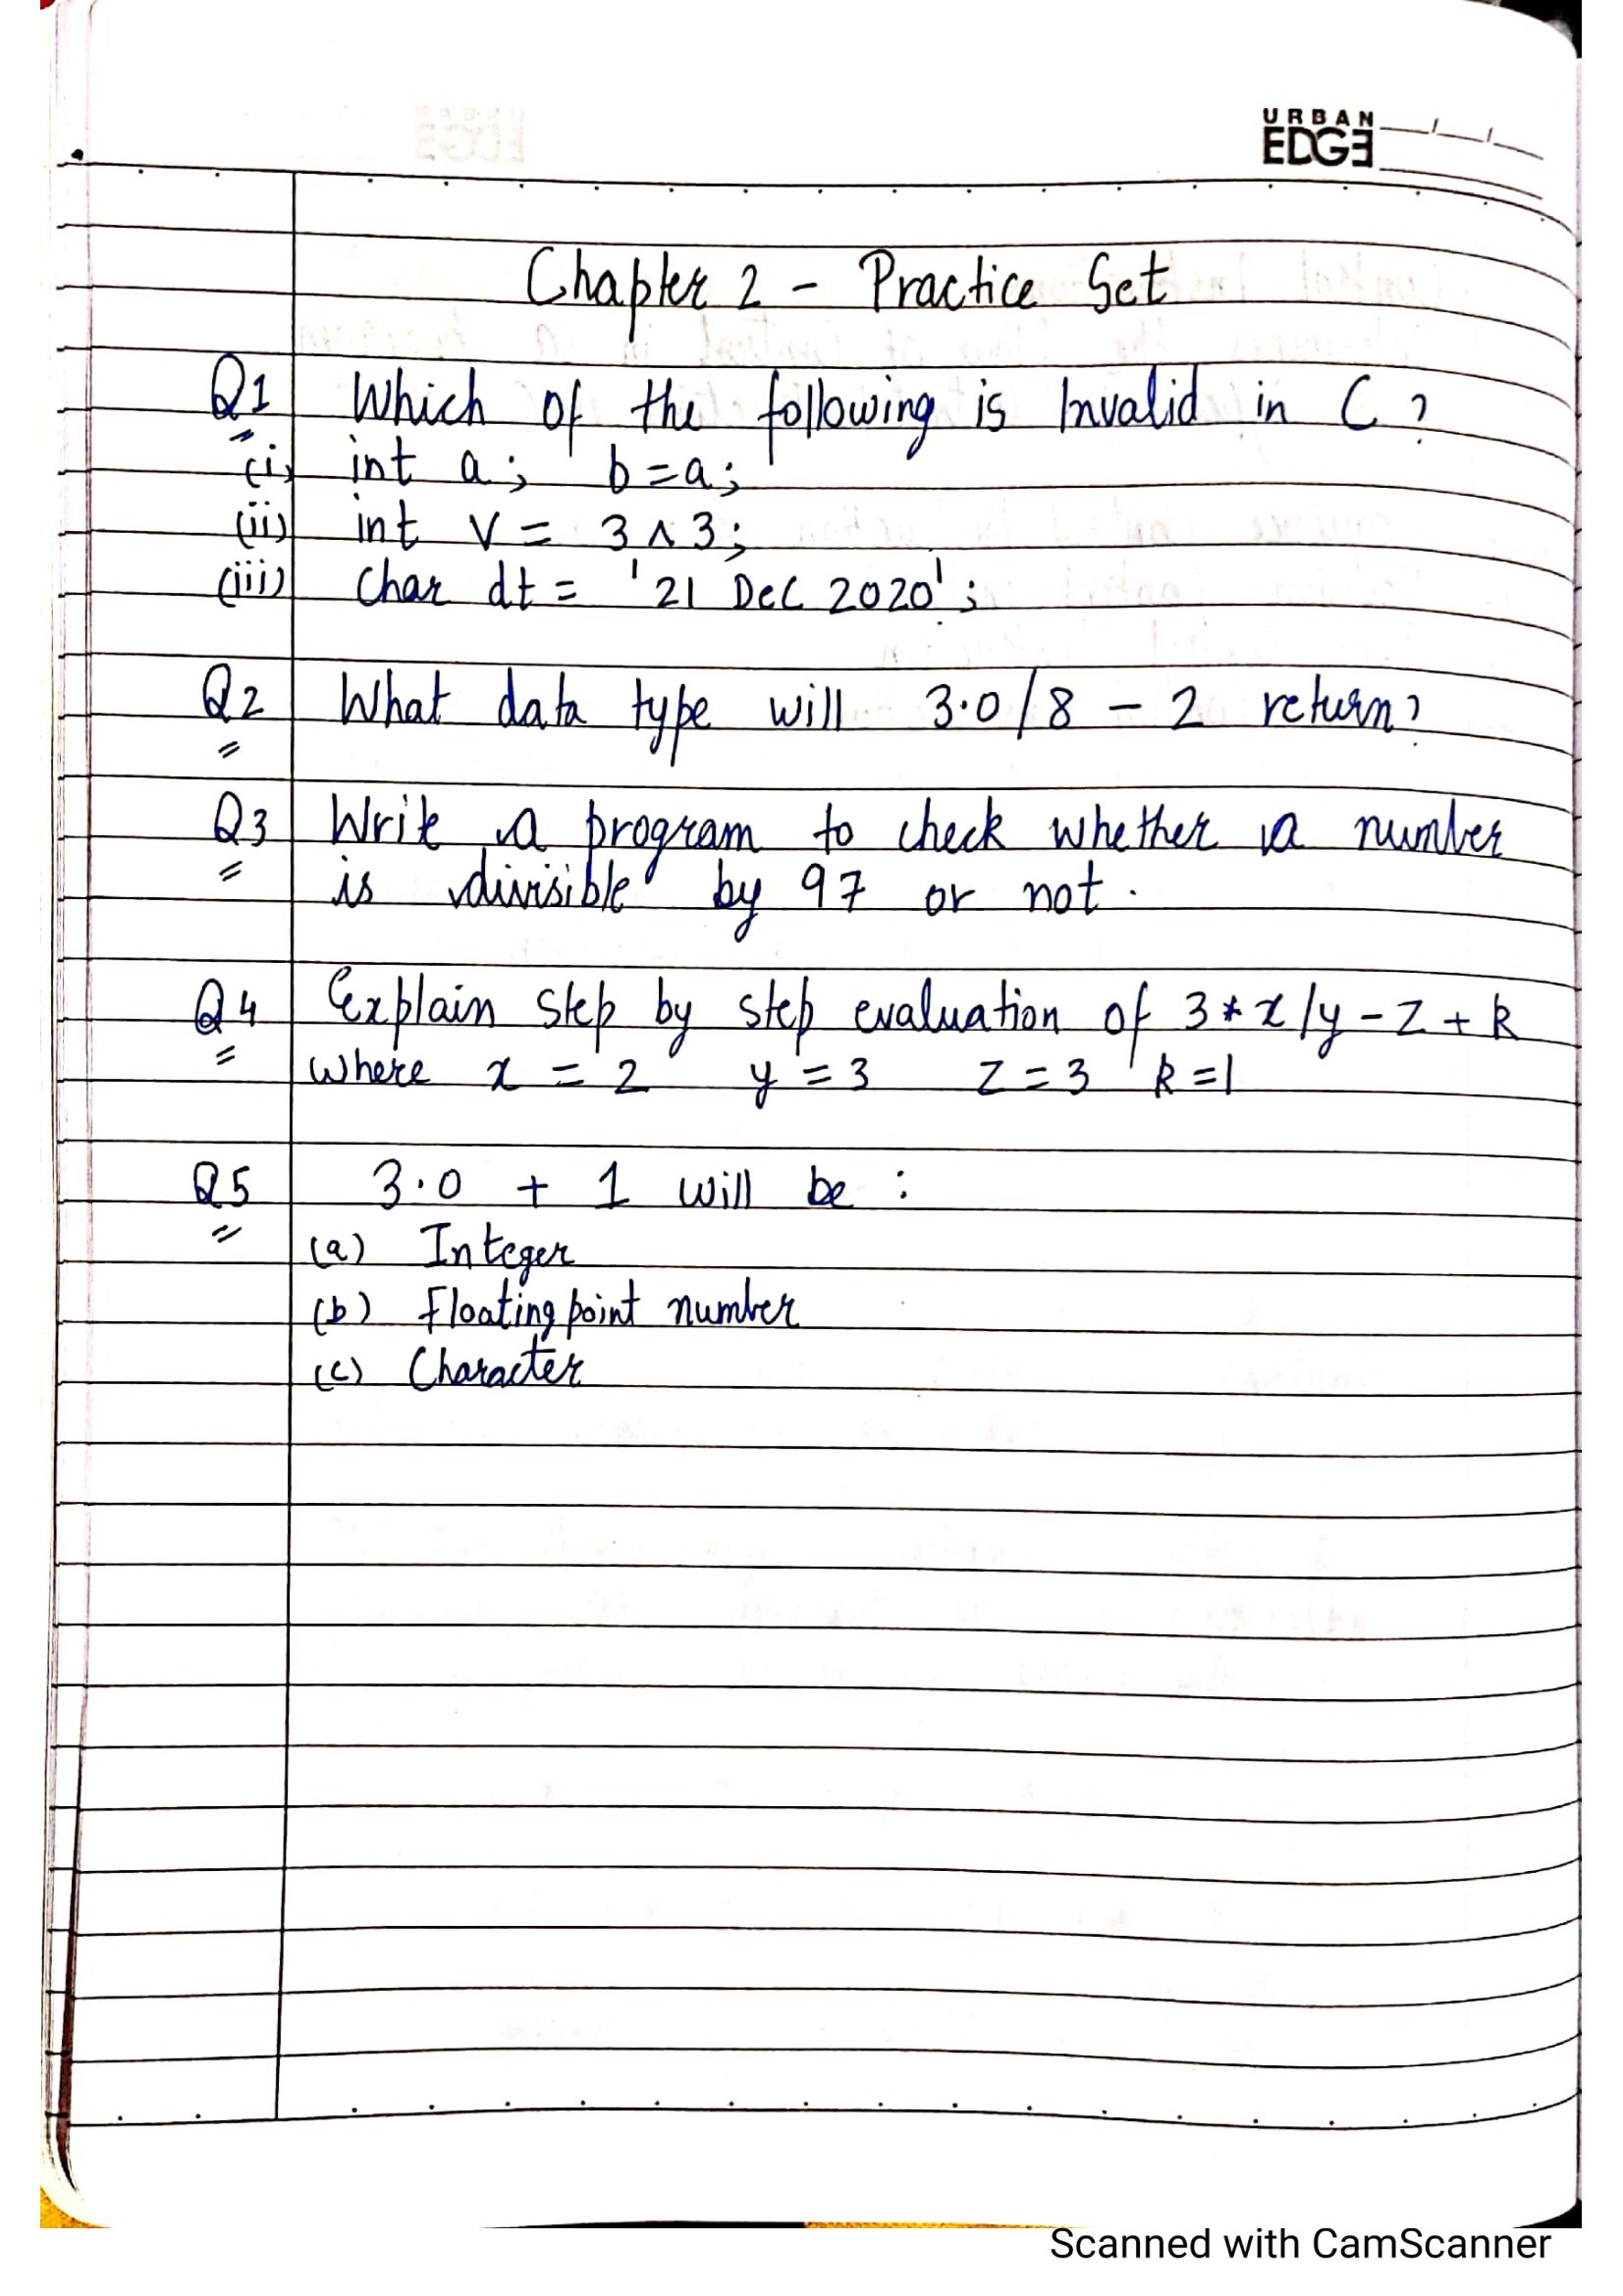 URBAN
EDGE
Chapter 2 - Practice Set
Q1 Which of the following is Invalid in C?
(i) int a; b=a;
(ii) int v = 3 ^ 3;
(iii) Char dt = '21 Dec 2020';
Q2 What data type will 3.0/8 - 2 return?
Q3 Write a program to check whether a number
is divisible by 97 or not.
Q4 Explain step by step evaluation of 3*x/y - z + k
where x = 2 y = 3 z = 3 k = 1
Q5 3.0 + 1 will be :
(a) Integer
(b) Floating point number
(c) Character
Scanned with CamScanner